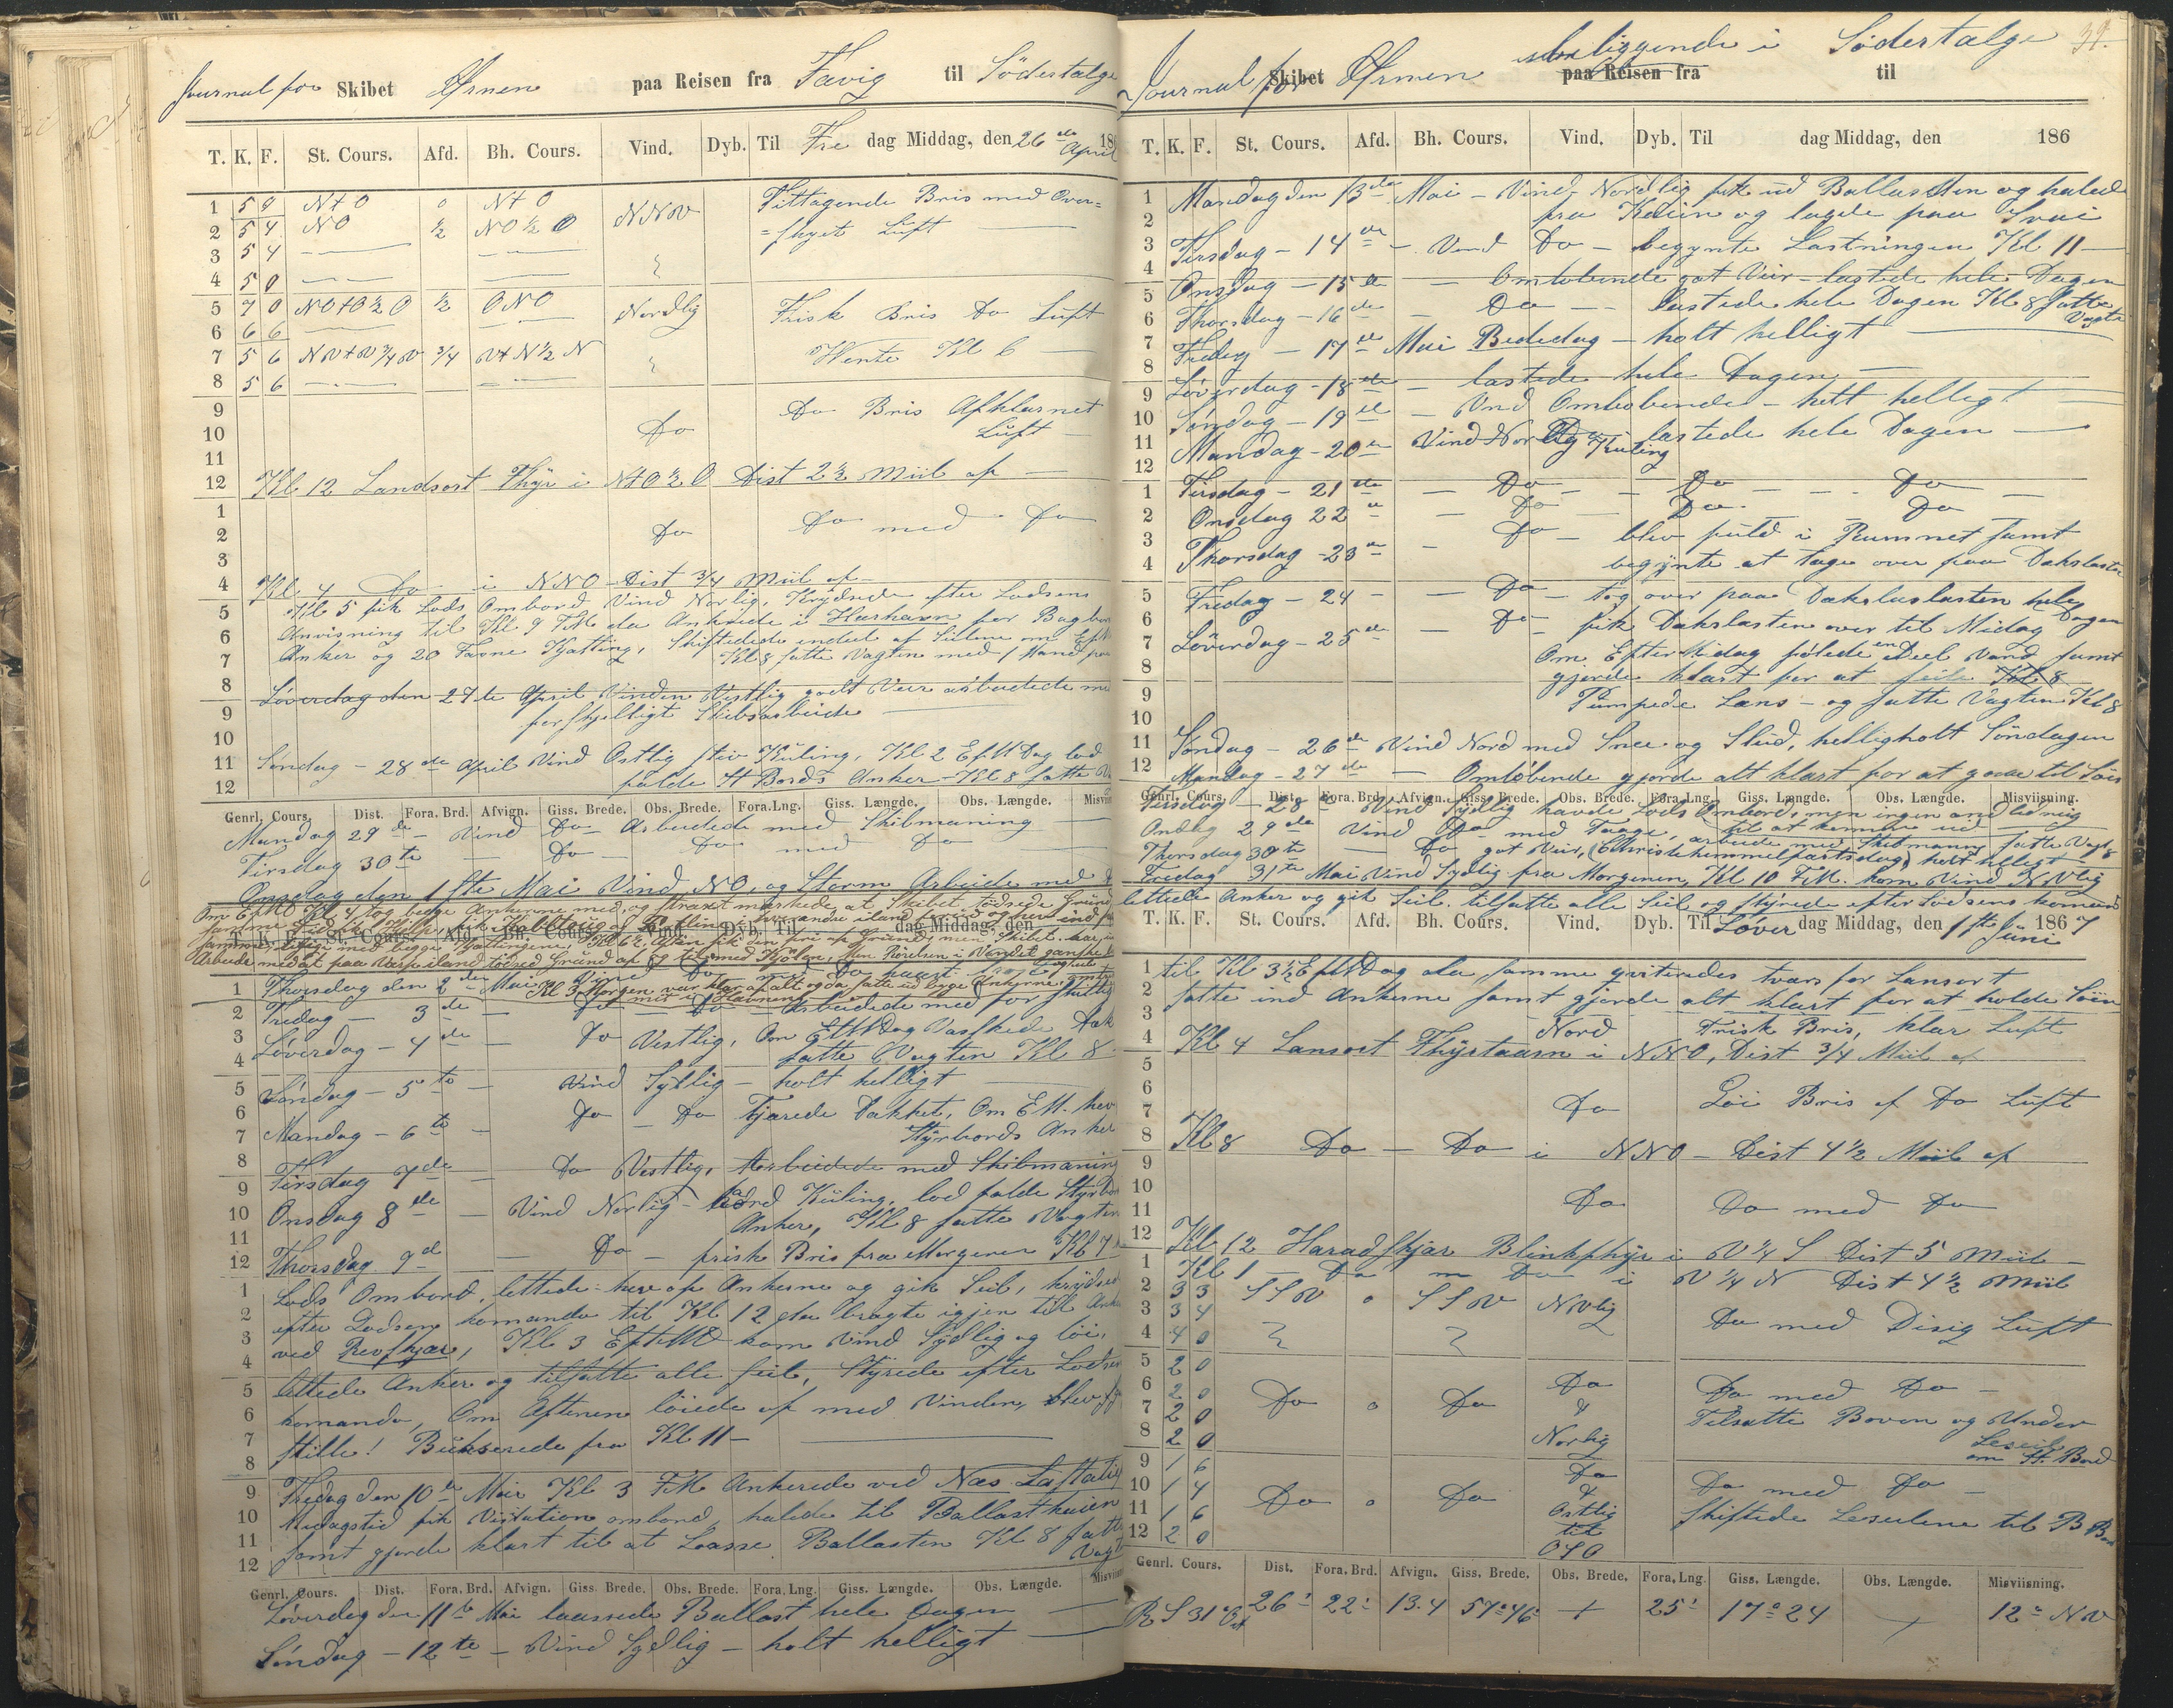 Journal for Skibet Ørnen paa Reisen fra Favig til Södertalge
T. K. F. St. Cours. Afd. Bh. Cours. Vind. Dyb. Til Fre dag Middag, den 26 de April 186
1 5 4 N t O 0 N t O NNV Tiltagende Bris med Over=
2 5 4 NO ½ NO ½ O =skyet Luft
3 5 4
4 5 0
5 7 0 NO t O ½ O ½ ONO Nordlig Frisk Bris Do Luft
6 6 6
7 5 6 NV t V ¾ V ¾ V t N ½ N Vente Kl 6
8 5 6
9 Do Bris Afklarnet
10 Do Luft
11
12 Kl 12 Landsort Fhÿr i N t O ½ O Dist 2 ½ Miil af
1
2 Do Do med Do
3
4 Kl 4 Do i NNO Dist ¾ Miil af
5 Kl 5 fik Lods Ombord Vind Norlig, Krÿdsede efter Lodsens
6 Anvisning til Kl 9 FM da Ankrede i Harhavn for Bagbor
7 Anker og 20 Favne Kjætting, Skiftedede endeel af Seilene om EftM
Kl 8 satte Vagten med 1 Mand paa
8 Løverdag den 27 de April Vinden Vestlig godt Veir arbeidede med
9 forskjelligt Skibsarbeide
10
11 Søndag - 28 de April Vind Ostlig stiv Kuling, Kl 2 EftMDag lod
12 falde St Bords Anker - Kl 8 satte V
Genrl. Cours. Dist. Fora. Brd. Afvign. Giss. Brede. Obs. Brede. Fora. Lng. Giss. Længde. Obs. Længde. Misvii
Mandag 29 de - Vind Do Arbeidede med Skibmaning
Tirsdag 30 te Do Do med Do
Onsdag den 1 ste Mai Vind NO, og Storm Arbeide med
Om EftMD Kl 4 tog begge Ankerne med, og straxt mærkede at Skibet stødede Grund
T. K. F. St. Cours. Afd. Bh. Cours. Vind. Dyb. Til dag Middag, den
1 Thorsdag den 2 de Mai Vind Do med Do
Kl 3 Morgen var klar af alt og da satte ud begge Ankerne,
2 Fredag - 3 de - Do - Do - Arbeidede med forskjellig
3 Løverdag - 4 de - Do Vestlig, Om EftMDag Vaskede Dæk
4 satte Vagten Kl 8
5 Søndag - 5 te - Vind Sydlig - holt helligt
6 Mandag - 6 te - Do - Do Tjærede Dækket, Om EM. hev
7 Styrbords Anker
8 Tirsdag 7 de - Do Vestlig, Arbeidede med Skibmaning
9 Onsdag 8 de - Vind Norlig - haard Kuling, lod falde Styrbor
10 Anker, Kl 8 satte Vagten
11
12 Thorsdag 9 d - Do - frisk Bris fra Morgenen Kl 7
1 Lods Ombord, lettede - hev op Ankerne og gik Seil, krÿdsed
2 efter Lodsens komando til Kl 12 da bragte igjen til Anke
3 ved Revskjær, Kl 3 EftMD kom Vind Sydlig og löi,
4 lettede Anker og tilsatte alle seil, Stÿrede efter Lodsen
5 komando, Om Aftenen löiede af med Vinden, blev
6
7 stille! Buksserede fra Kl 11
8
9 Fredag den 10 de Mai Kl 3 FM Ankerede ved Næs
10 Midagstid fik Visitation ombord, halede til Ballastkaien
11 samt gjorde klart til at Losse Ballasten Kl 8 satte
12 Vagt
Genrl. Cours. Dist. Fora. Brd. Afvign. Giss. Brede. Obs. Brede. Fora. Lng. Giss. Længde. Obs. Længde. Misviisn
Løverdag den 11 te Mai laassede Ballast hele Dagen
Søndag - 12 te - Vind Sydlig - holt helligt
39.
Journal for Skibet Ørnen liggende i Södertalge
paa Reisen fra til
T. K. F. St. Cours. Afd. Bh. Cours. Vind. Dyb. Til dag Middag, den 186
1 Mandag den 13 de Mai - Vind Nordlig fik ud Ballasten og halede
2 fra Kaien og lagde paa Svai
3 Tirsdag - 14 de - Vind Do - begynte Lastningen Kl 11
4
5 Onsdag - 15 de - Omlobende got Veir - lastede hele Dagen
6 Thorsdag - 16 de - Do - lastede hele Dagen Kl 8 satte Vagt
7 Fredag - 17 de Mai Bededag - holt helligt
8
9 Løverdag - 18 de - lastede hele Dagen
10 Søndag - 19 de - Vnd Omlobende - holt helligt
11 Mandag - 20 de Vind Norlig Kuling - lastede hele Dagen
12
1 Tirsdag - 21 de - Do - Do - Do
2 Onsdag 22 de - Do Do Do
3 Thorsdag - 23 de - Do - blev fuld i Rummet samt
4 begÿnte at tage over paa Dækslasten
5 Fredag - 24 - - Do - tog over paa Dækslasten hele Dagen
6 Do - fik Dækslasten over til Midag
7 Løverdag - 25 de - Om EfterMidag følede en Deel Vand samt
8 gjorde klart for at seile Kl 8
9 Pumpede Læns - og satte Vagten Kl 8
10
11 Søndag - 26 de Vind Nord med Snee og Slud, helligholt Söndagen
12 Mandag - 27 de - Omløbende gjorde alt klart for at gaae til Søes
Genrl. Cours. Dist. Fora. Brd. Afvign. Giss. Brede. Obs. Brede. Fora. Lng. Giss. Længde. Obs. Længde. Misviisning.
Tirsdag - 28 de Vind Sydlig havde Lods Ombord, men ingen anledning
til at komme ud
Onsdag 29 de Vind Do med Taage, arbeide med Skibmaning satte Vagt
Thorsdag 30 te - Do got Veir, (Christihimmelfartsdag) holt helligt
Fredag 31 te Mai Vind Sydlig fra Morgenen, Kl 10 FM. kom Vind NVlig
lettede Anker og gik Seil. tilsatte alle Seil og stÿrede efter Lodsens komando
T. K. F. St. Cours. Afd. Bh. Cours. Vind. Dyb. Til Løver dag Middag, den 1 ste Juni 1867
1 til Kl 3½ EftMDag da samme qvitteredes tvars for Lansort
2 satte ind Ankerne samt gjorde alt klart for at holde Søen
3 Nord Frisk Bris, klar Luft
4 Kl 4 Lansort Fhÿrtaarn i NNO, Dist ¾ Miil af
5
6
7 Do Löi Bris af Do Luft
8 Kl 8 Do - Do i NNO - Dist 4 ½ Miil af
9
10
11 Do Do med Do
12 Kl 12 Haradskjær Blinkfhÿr i V ¼ S Dist 5 Miil
1 Kl 1 - Do - Do i V ¼ N Dist 4 ½ Miil
2 3 3 SSV 0 SSV NVlig
3 3 4 Do med Disig Luft
4 4 0
5 2 0
6 2 0 Do Do med Do
7 2 0 Do 0 Do & Tilsatte Boven og Under
8 2 0 Norlig Leseil om St. Bord
9 1 6 Do
10 1 4 Do 0 Do & Do med Do
11 1 6 Ostlig Skiftede Leseilene til B Bord
12 2 0 til OSO
Genrl. Cours. Dist. Fora. Brd. Afvign. Giss. Brede. Obs. Brede. Fora. Lng. Giss. Længde. Obs. Længde. Misviisning.
R S 31° Vst 26' 22' 13.4 57°46' + 25' 17°24 + 12° NV